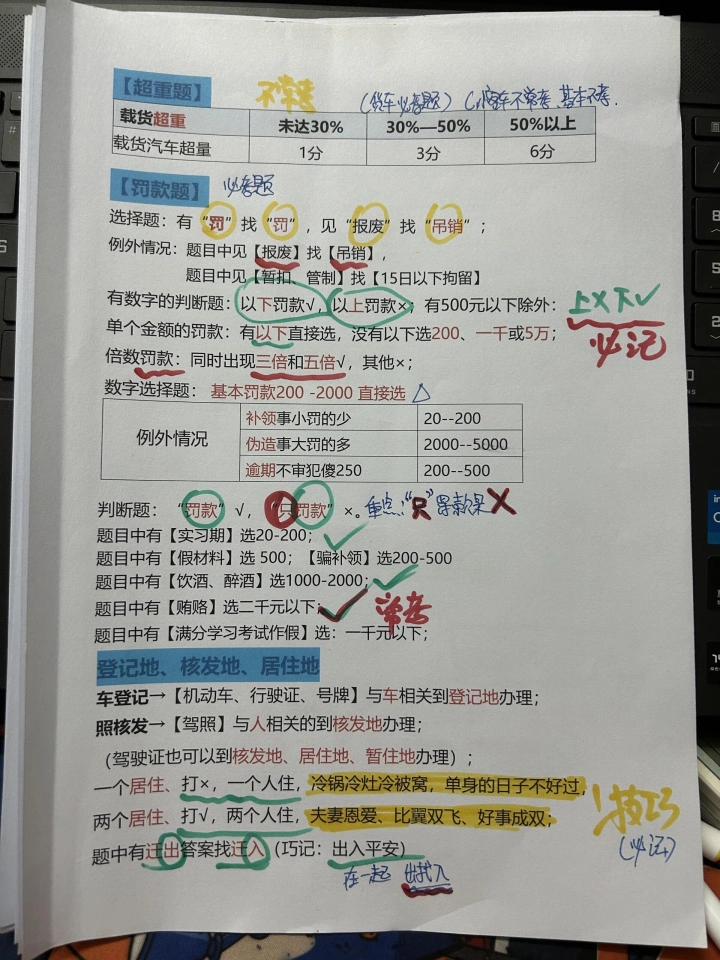 【超重题】 不常考 (货车必考题) C1小车不常考、基本不考.
载货超重 未达30% 30%—50% 50%以上
载货汽车超量 1分 3分 6分
【罚款题】 必考题
选择题：有“罚”找“罚”，见“报废”找“吊销”；
例外情况：题目中见【报废】找【吊销】，
题目中见【暂扣、管制】找【15日以下拘留】
有数字的判断题：以下罚款√，以上罚款×；有500元以下除外： 上×下√
单个金额的罚款：有以下直接选，没有以下选200、一千或5万； 必记
倍数罚款：同时出现三倍和五倍√，其他×；
数字选择题： 基本罚款200 -2000 直接选 △
例外情况
补领事小罚的少 20--200
伪造事大罚的多 2000--5000
逾期不审犯傻250 200--500
判断题： “罚款” √， “只罚款” ×。 重点：“只”罚款是×
题目中有【实习期】选20-200； ✓
题目中有【假材料】选 500；【骗补领】选200-500
题目中有【饮酒、醉酒】选1000-2000； ✓
题目中有【贿赂】选二千元以下； ✓ 常考
题目中有【满分学习考试作假】选：一千元以下；
登记地、核发地、居住地
车登记→【机动车、行驶证、号牌】与车相关到登记地办理；
照核发→【驾照】与人相关的到核发地办理；
（驾驶证也可以到核发地、居住地、暂住地办理）；
一个居住、打×，一个人住，冷锅冷灶冷被窝，单身的日子不好过，
两个居住、打√，两个人住，夫妻恩爱、比翼双飞、好事成双； ！技巧
题中有迁出答案找迁入（巧记：出入平安） (必记)
在一起 出找入